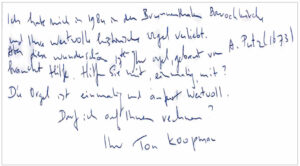 Ich habe mich in 1984 in den Brunnenthaler Barockkirche
und Ihre wertvolle historische orgel verliebt.
Diese wunderschöne 17th Jhr orgel, gebaut von A. Putz (1673)
braucht Hilfe. Hilfen Sie mit, einmalig, mit?
Die Orgel ist einmalig und äusserst wertvoll.
Darf ich auf Ihnen rechnen?
Ihr Ton Koopman